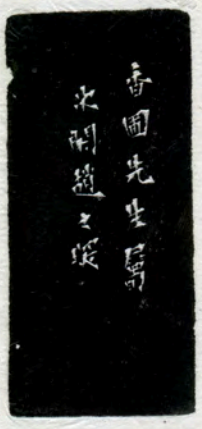 香圃先生屬
次閑趙之琛